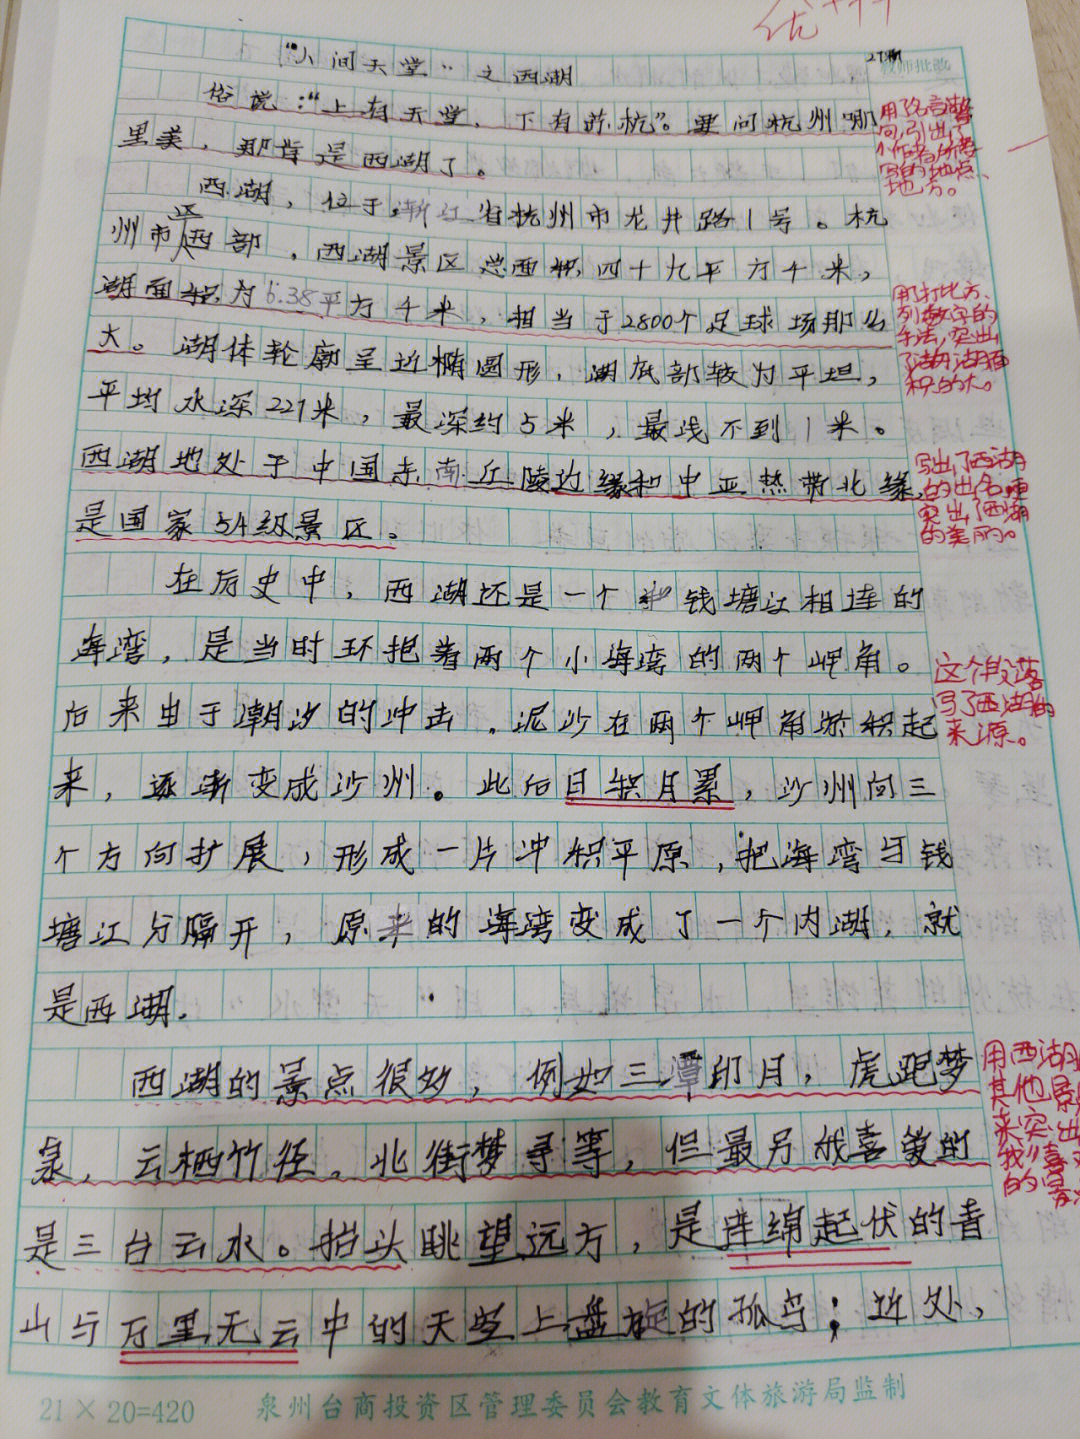 优+++
"人间天堂"之西湖
教师批改
俗说："上有天堂，下有苏杭"。要问杭州哪
里美，那肯定是西湖了。
西湖，位于浙江省杭州市龙井路1号。杭
州市区西部，西湖景区总面积四十九平方千米，
湖面积为6.38平方千米，相当于2800个足球场那么
大。湖体轮廓呈近椭圆形，湖底部较为平坦，
平均水深227米，最深约5米，最浅不到1米。
西湖地处于中国东南丘陵边缘和中亚热带北缘，
是国家5A级景区。
在历史中，西湖还是一个和钱塘江相连的
海湾，是当时环抱着两个小海湾的两个岬角。
后来由于潮汐的冲击，泥沙在两个岬角淤积起
来，逐渐变成沙州。此后日积月累，沙州向三
个方向扩展，形成一片冲积平原，把海湾与钱
塘江分隔开，原来的海湾变成了一个内湖，就
是西湖.
西湖的景点很妙，例如三潭印月，虎跑梦
泉，云栖竹径。北街梦寻等，但最另我喜爱的
是三台云水。抬头眺望远方，是连绵起伏的青
山与万里无云中的天空上盘旋的孤鸟；近处，
用了名言
句，引出了
个作者所要
写的地点、
地方。
用打比方、
列数字的
手法，突出
了西湖湖面
积的大。
写出了西湖
的出名，更
突出了西湖
的美丽。
这个段落
写了西湖的
来源。
用西湖
其他景
来突出
我喜
的
21×20=420 泉州台商投资区管理委员会教育文体旅游局监制